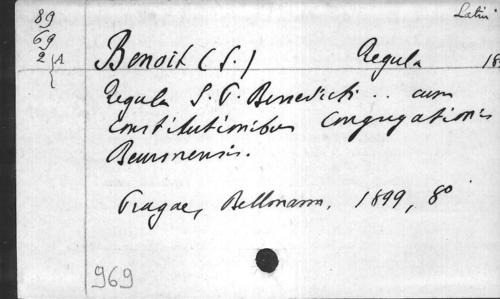 Latin
89
69
2 { A
Benoit (S.) Regula 18
Regula S. P. Benedicti .. cum
Constitutionibus Congregationis
Beuronensis.
Pragae, Bellmann, 1899, 8°
969